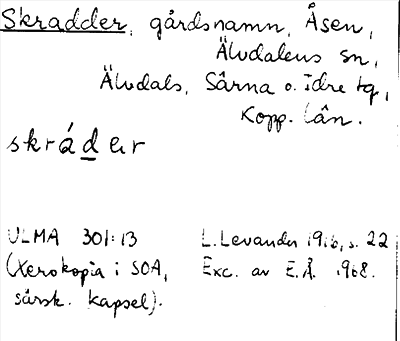 Skradder, gårdsnamn, Åsen,
Älvdalens sn,
Älvdals, Särna o. Idre tg,
Kopp. län.
skráder
ULMA 301:13
(Xerokopia i SOA,
särsk. kapsel).
L. Levander 1916, s. 22
Exc. av E.Å. 1968.